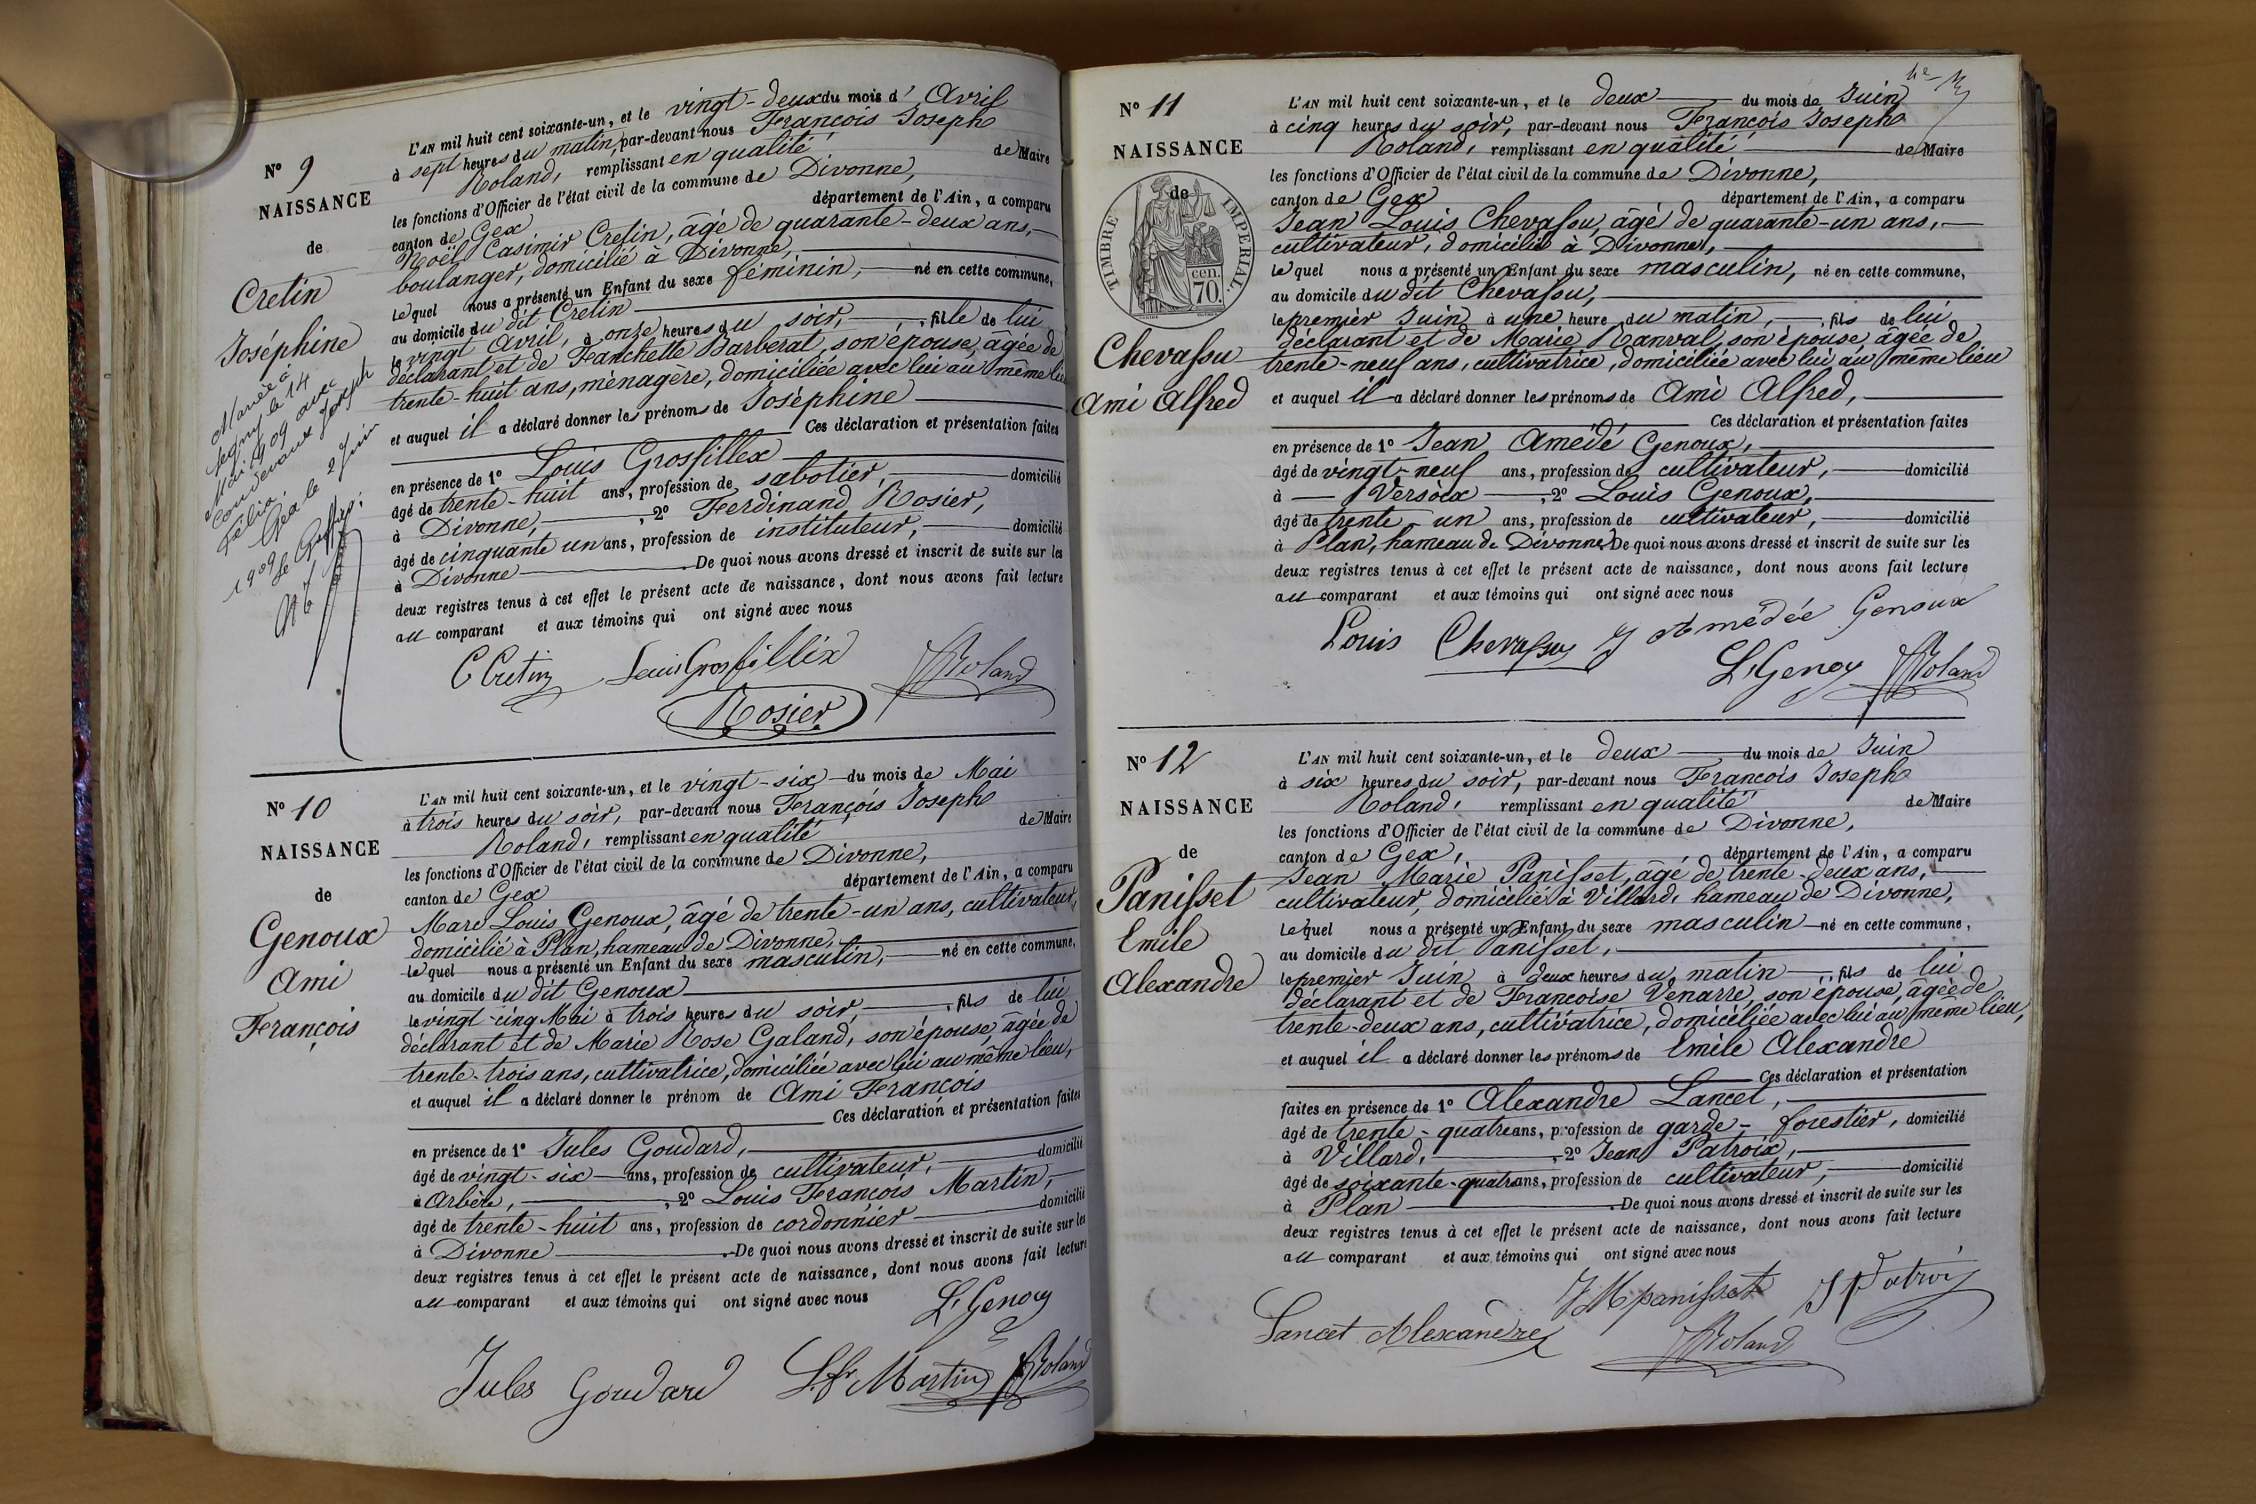 N° 9
NAISSANCE
de
Cretin
Joséphine
Mariée à
Segny le 14
Mai 1909 avec
Joseph
Félix.
Gex le 2 Juin
1909
Le Greffier:
L'AN mil huit cent soixante-un, et le vingt-deux du mois d' Avril
à sept heures du matin, par-devant nous François Joseph
Roland, remplissant en qualité de Maire
les fonctions d'Officier de l'état civil de la commune de Divonne,
canton de Gex département de l'Ain, a comparu
Noël Casimir Cretin, âgé de quarante-deux ans,
boulanger, domicilié à Divonne,
lequel nous a présenté un Enfant du sexe féminin, né en cette commune,
au domicile du dit Cretin
le vingt Avril, à onze heures du soir, , fille de lui
déclarant et de Franchette Barberat, son épouse, âgée de
trente-huit ans, ménagère, domiciliée avec lui au même lieu
et auquel il a déclaré donner les prénoms de Joséphine
Ces déclaration et présentation faites
en présence de 1° Louis Grosfillex
âgé de trente-huit ans, profession de sabotier, domicilié
à Divonne, , 2° Ferdinand Rosier,
âgé de cinquante un ans, profession de instituteur, domicilié
à Divonne . De quoi nous avons dressé et inscrit de suite sur les
deux registres tenus à cet effet le présent acte de naissance, dont nous avons fait lecture
au comparant et aux témoins qui ont signé avec nous
C Cretin Louis Grosfillex Roland
Rosier
N° 10
NAISSANCE
de
Genoux
Ami
François
L'AN mil huit cent soixante-un, et le vingt-six du mois de Mai
à trois heures du soir, par-devant nous François Joseph
Roland, remplissant en qualité de Maire
les fonctions d'Officier de l'état civil de la commune de Divonne,
canton de Gex département de l'Ain, a comparu
Marc Louis Genoux, âgé de trente-un ans, cultivateur,
domicilié à Plan, hameau de Divonne,
lequel nous a présenté un Enfant du sexe masculin, né en cette commune,
au domicile du dit Genoux
le vingt-cinq Mai à trois heures du soir, , fils de lui
déclarant et de Marie Rose Galand, son épouse, âgée de
trente-trois ans, cultivatrice, domiciliée avec lui au même lieu,
et auquel il a déclaré donner le prénom de Ami François
Ces déclaration et présentation faites
en présence de 1° Jules Goudard,
âgé de vingt-six ans, profession de cultivateur, domicilié
à Arbère, , 2° Louis François Martin,
âgé de trente-huit ans, profession de cordonnier domicilié
à Divonne . De quoi nous avons dressé et inscrit de suite sur les
deux registres tenus à cet effet le présent acte de naissance, dont nous avons fait lecture
au comparant et aux témoins qui ont signé avec nous
L. Genoux
Jules Goudard L. fr Martin Roland
N° 11
NAISSANCE
de
TIMBRE IMPERIAL.
cen.
70.
Chevassu
Ami Alfred
L'AN mil huit cent soixante-un, et le deux du mois de Juin
à cinq heures du soir, par-devant nous François Joseph
Roland, remplissant en qualité de Maire
les fonctions d'Officier de l'état civil de la commune de Divonne,
canton de Gex département de l'Ain, a comparu
Jean Louis Chevassu, âgé de quarante-un ans,
cultivateur, domicilié à Divonne,
lequel nous a présenté un Enfant du sexe masculin, né en cette commune,
au domicile du dit Chevassu,
le premier Juin à une heure du matin, , fils de lui
déclarant et de Marie Ranval, son épouse, âgée de
trente-neuf ans, cultivatrice, domiciliée avec lui au même lieu
et auquel il a déclaré donner les prénoms de Ami Alfred,
Ces déclaration et présentation faites
en présence de 1° Jean Amédé Genoux,
âgé de vingt-neuf ans, profession de cultivateur, domicilié
à Versoix , 2° Louis Genoux,
âgé de trente-un ans, profession de cultivateur, domicilié
à Plan, hameau de Divonne. De quoi nous avons dressé et inscrit de suite sur les
deux registres tenus à cet effet le présent acte de naissance, dont nous avons fait lecture
au comparant et aux témoins qui ont signé avec nous
Louis Chevassu J Amédée Genoux
L. Genoux Roland
N° 12
NAISSANCE
de
Panisset
Emile
Alexandre
L'AN mil huit cent soixante-un, et le deux du mois de Juin
à six heures du soir, par-devant nous François Joseph
Roland, remplissant en qualité de Maire
les fonctions d'Officier de l'état civil de la commune de Divonne,
canton de Gex, département de l'Ain, a comparu
Jean Marie Panisset, âgé de trente-deux ans,
cultivateur, domicilié à Villard, hameau de Divonne,
lequel nous a présenté un Enfant du sexe masculin né en cette commune,
au domicile du dit Panisset,
le premier Juin à deux heures du matin , fils de lui
déclarant et de Françoise Venarre, son épouse, âgée de
trente-deux ans, cultivatrice, domiciliée avec lui au même lieu,
et auquel il a déclaré donner les prénoms de Emile Alexandre
Ces déclaration et présentation
faites en présence de 1° Alexandre Lancet,
âgé de trente-quatre ans, profession de garde-forestier, domicilié
à Villard, , 2° Jean Patroix,
âgé de soixante-quatre ans, profession de cultivateur, domicilié
à Plan . De quoi nous avons dressé et inscrit de suite sur les
deux registres tenus à cet effet le présent acte de naissance, dont nous avons fait lecture
au comparant et aux témoins qui ont signé avec nous
JM panisset J Patroix
Lancet Alexandre Roland